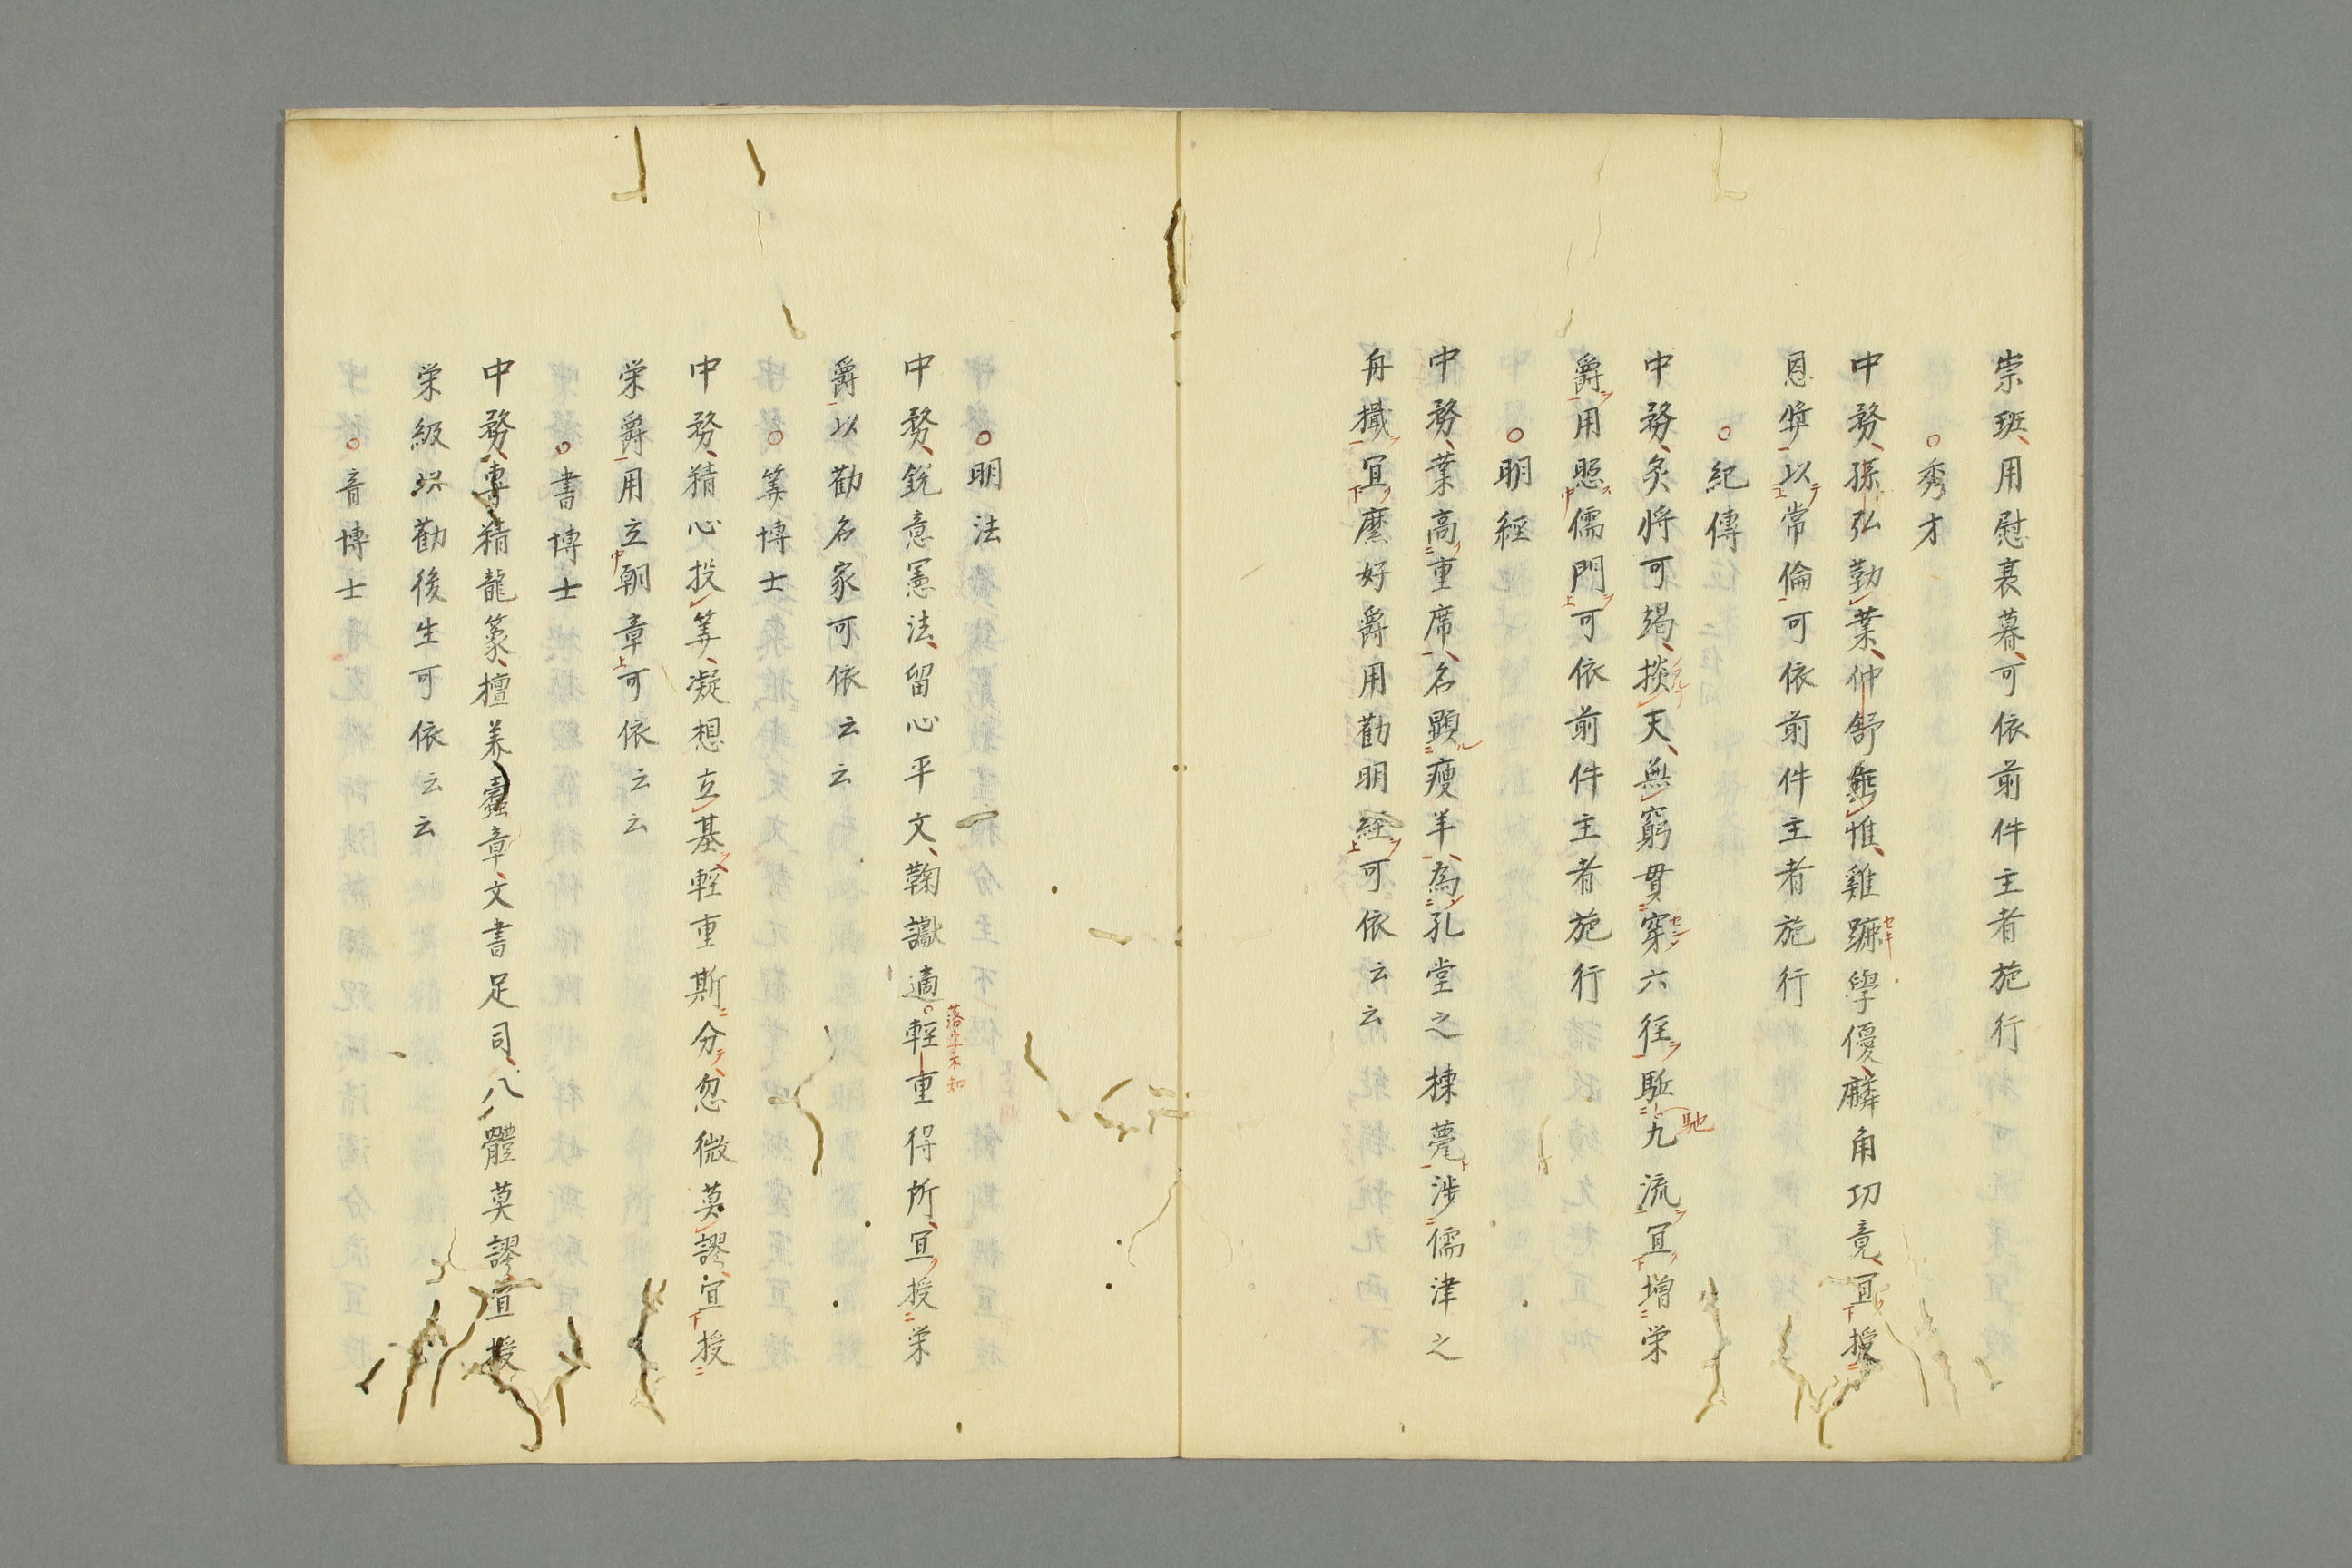 崇班用慰裏暮可依前件主者施行
秀才
中務孫弘勤業仲舒帷雞蹠學優麟角功竟冝授
恩奨以常倫可依前件主者施行
紀傳
中務炙将可竭掞天無窮貫穿六径駈九流冝増栄
馳
爵用照儒門可依前件主者施行
明經
中務業高重席名顕瘦羊為孔堂之棟甍渉儒津之
舟檝冝縻好爵用勸明経可依云云
明法
中務鋭意憲法留心平文鞠讞適輕重得所冝授栄
落字不知
爵以勸名家可依云云
筭博士
中務精心投筭凝想立基軽重斯分忽微莫謬冝授
栄爵用立朝章可依云云
書博士
中務專精龍篆擅美蠹章文書足司八體莫謬宜授
栄級以勸後生可依云云
音博士